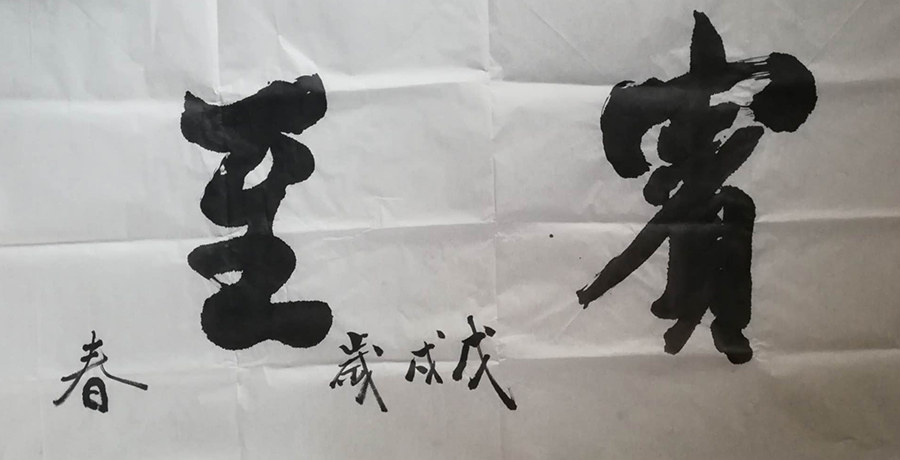 賓至
戊戌歲春